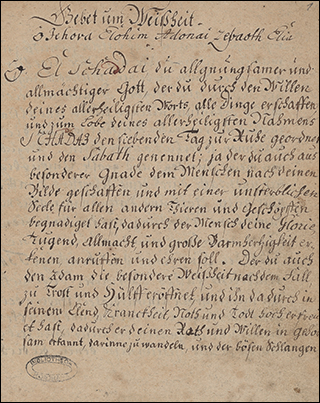 Gebet um Weißheit.
O Jehova Elohim Adonai Zebaoth Elia
El Schadai du allgnungsamer und
allmächtiger Gott der du durch den Willen
deines allerheiligsten Worts, alle Dinge erschaffen
und zum Lobe deines allerheiligsten Nahmens
SCHADAI den siebenden Tag zu Ruhe geordnet
und den Sabath genennet; ja der du auch aus
besonderer Gnade dem Menschen nach deinem
Bilde geschaffen und mit einer unsterblichen
Seele für allen andern Thieren und Geschöpffen
begnadiget hast, dadurch der Mensch deine Glorie,
Tugend, Allmacht und große Barmherzigkeit er-
kenen, anruffen und ehren soll. Der du auch
den Adam die besondere Weißheit nach dem Fall
zu Trost und Hülff eröffnet, und ihn dadurch in
seinem Elend, Kranckheit, Noth und Todt hoch erfreu
et hast, dadurch er deinen Rath und Willen in Gehor
sam erkannt, darinne zu wandeln, und der bösen Schlangen